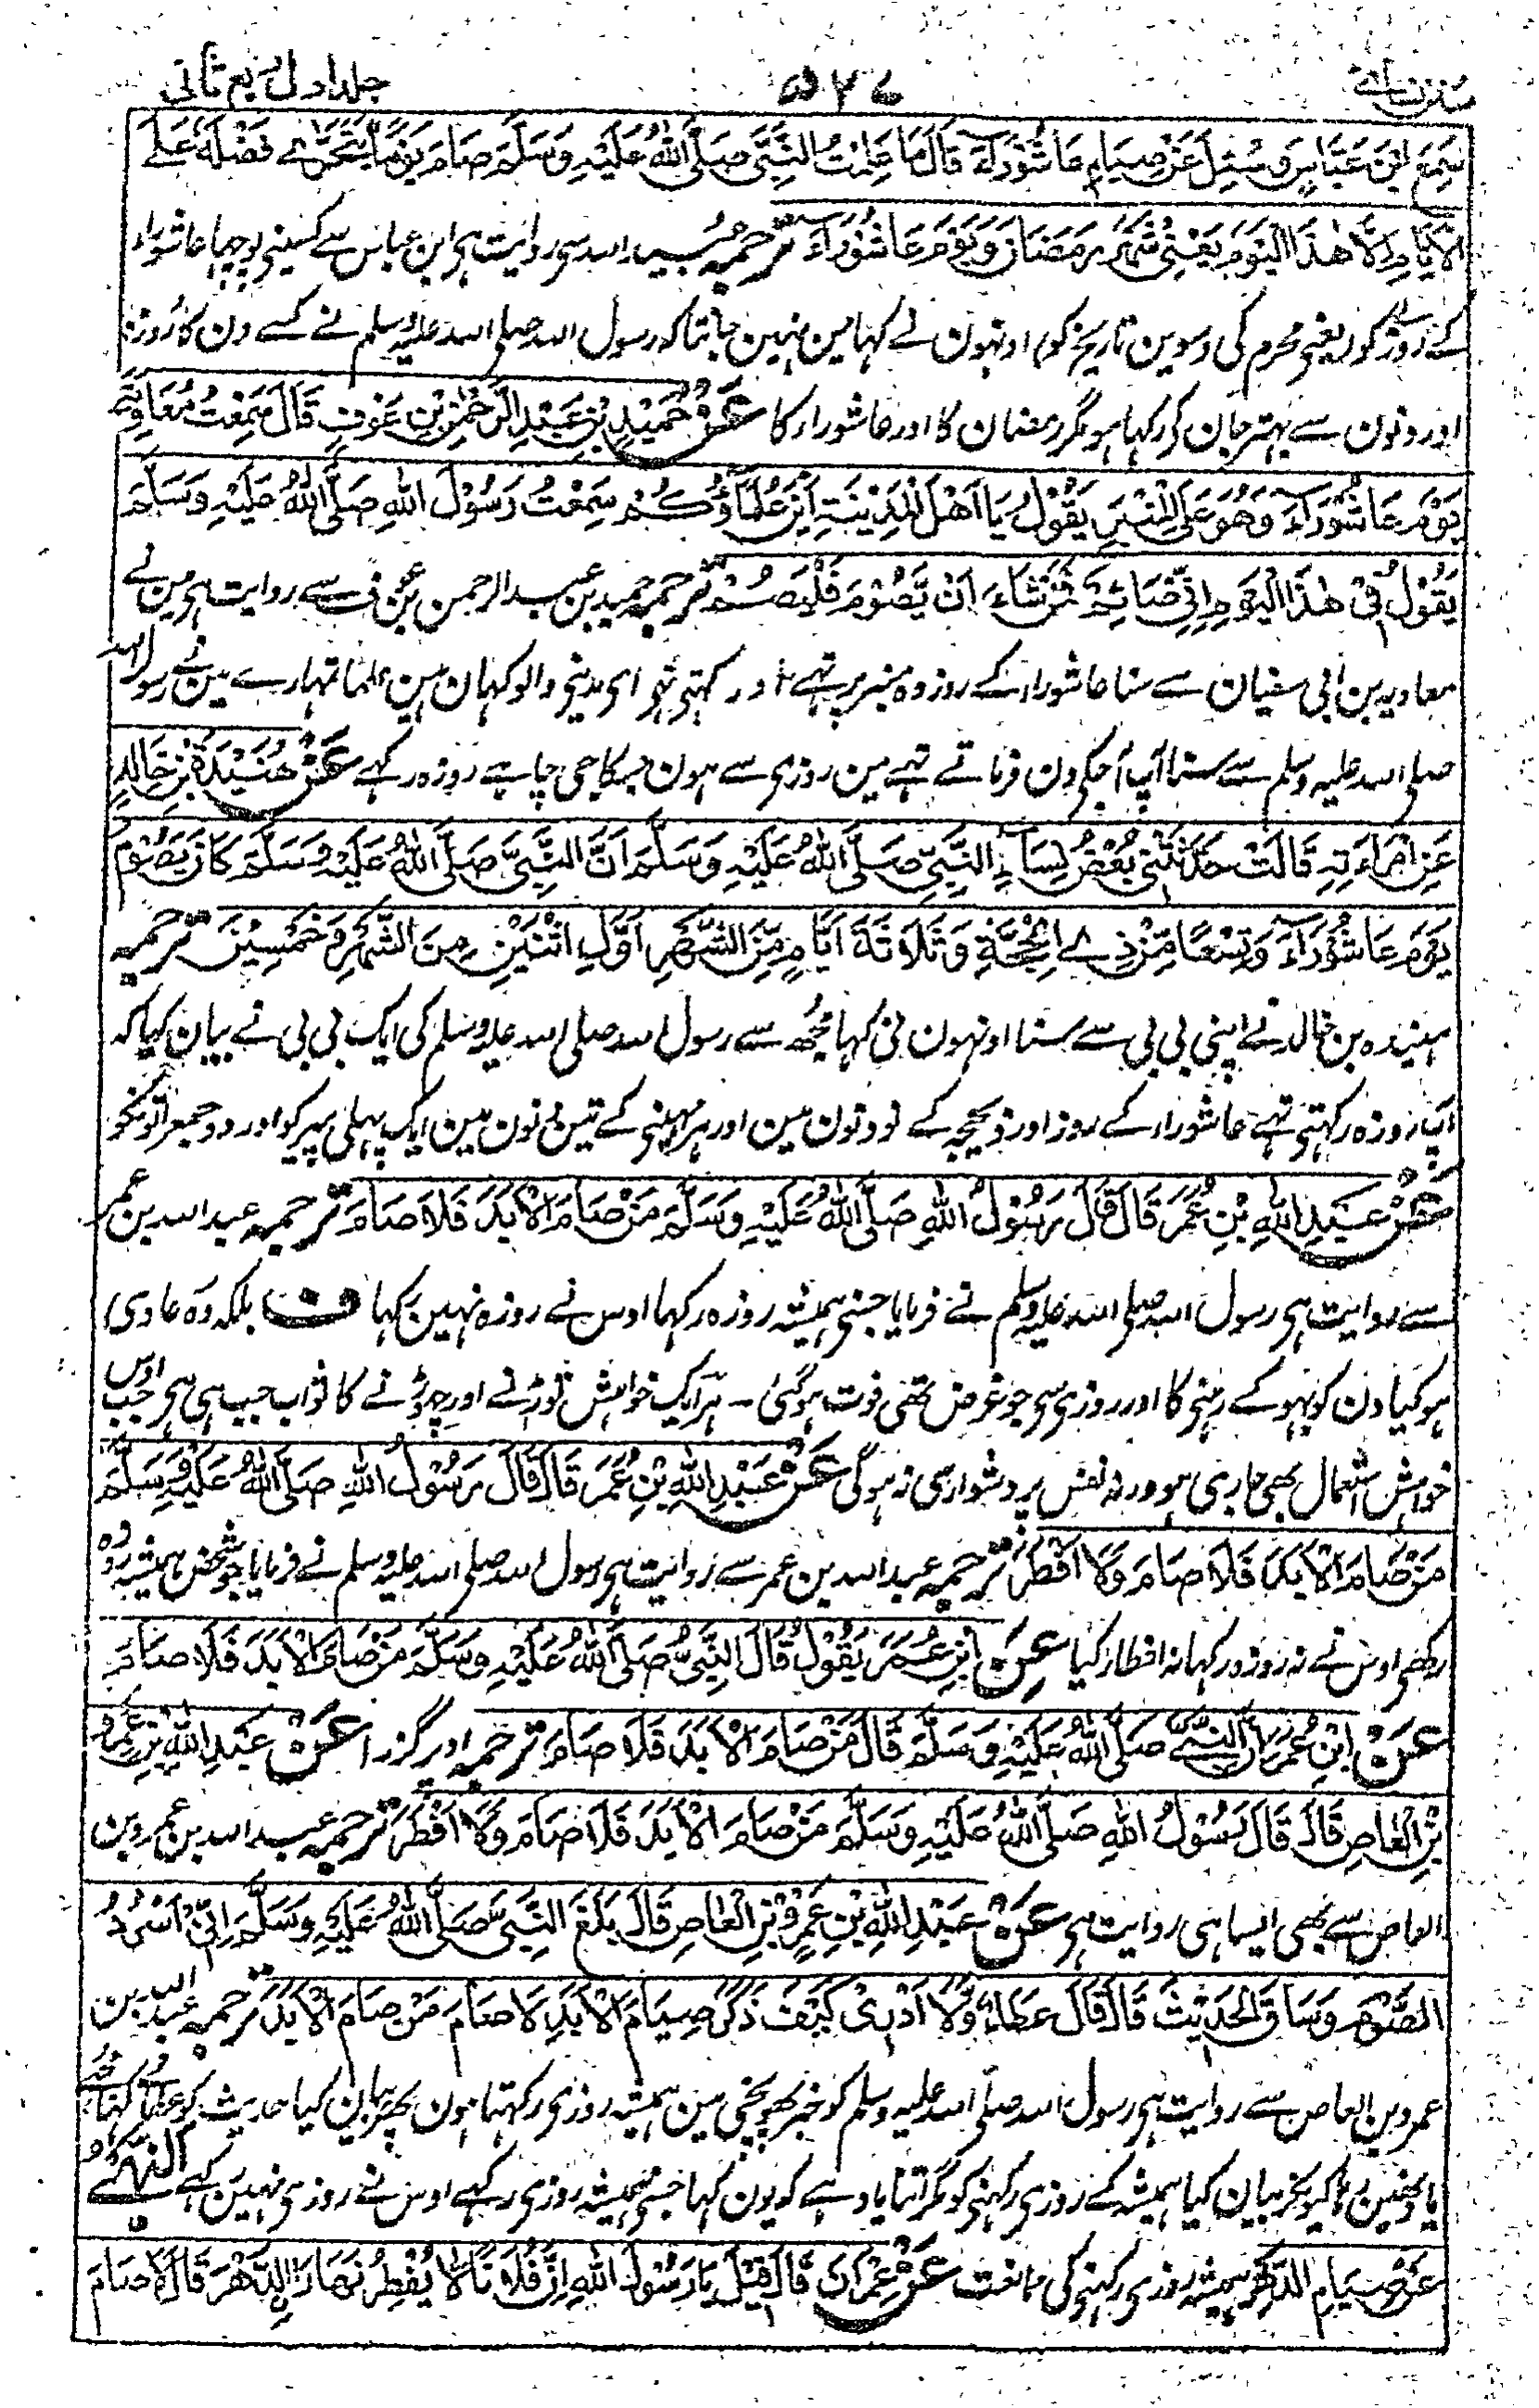 سنن نسائی ۵۷۷ جلد اول ربع ثانی
سَمِعَ ابْنَ عَبَّاسٍ وَسُئِلَ عَنْ صِيَامِ عَاشُوْرَآءَ قَالَ مَا عَلِمْتُ النَّبِيَّ صَلَّى اللهُ عَلَيْهِ وَسَلَّمَ صَامَ يَوْمًا يَتَحَرّٰى فَضْلَهٗ عَلَى
الْاَيَّامِ اِلَّا هٰذَا الْيَوْمَ يَعْنِىْ شَهْرَ رَمَضَانَ وَيَوْمَ عَاشُوْرَآءَ ترجمہ عبید اللہ سی روایت ہی ابن عباس سے کسینی پوچہا عاشوراء
کے روزے کو (یعنی محرم کی دسوین تاریخ کو) اونہون نے کہا مین نہین جانتا کہ رسول اللہ صلی اللہ علیہ وسلم نے کسے دن کا روزہ
اور دنون سے بہتر جان کر رکہا ہو مگر رمضان کا اور عاشوراء کا عَنْ حُمَيْدِ بْنِ عَبْدِ الرَّحْمٰنِ بْنِ عَوْفٍ قَالَ سَمِعْتُ مُعَاوِيَةَ
يَوْمَ عَاشُوْرَآءَ وَهُوَ عَلَى الْمِنْبَرِ يَقُوْلُ يَا اَهْلَ الْمَدِيْنَةِ اَيْنَ عُلَمَاؤُكُمْ سَمِعْتُ رَسُوْلَ اللهِ صَلَّى اللهُ عَلَيْهِ وَسَلَّمَ
يَقُوْلُ فِىْ هٰذَا الْيَوْمِ اِنِّىْ صَائِمٌ فَمَنْ شَاءَ اَنْ يَّصُوْمَ فَلْيَصُمْ ترجمہ حمید بن عبد الرحمن بن عوف سے روایت ہی مین نے
معاویہ بن ابی سفیان سے سنا عاشوراء کے روز وہ منبر پر تہے اور کہتی تہی ای مدینی والو کہان ہین علما تمہارے مین نے رسول اللہ
صلی اللہ علیہ وسلم سے سنا آپ آجکی دن فرماتے تہے مین روزی سے ہون جسکا جی چاہے روزہ رکہے عَنْ هُنَيْدَةَ بْنِ خَالِدٍ
عَنِ امْرَاَتِهٖ قَالَتْ حَدَّثَتْنِىْ بَعْضُ نِسَاءِ النَّبِيِّ صَلَّى اللهُ عَلَيْهِ وَسَلَّمَ اَنَّ النَّبِيَّ صَلَّى اللهُ عَلَيْهِ وَسَلَّمَ كَانَ يَصُوْمُ
يَوْمَ عَاشُوْرَآءَ وَتِسْعًا مِّنْ ذِى الْحِجَّةِ وَثَلَاثَةَ اَيَّامٍ مِّنَ الشَّهْرِ اَوَّلَ اثْنَيْنِ مِنَ الشَّهْرِ وَخَمِيْسَيْنِ ترجمہ
ہنیدہ بن خالد نے اپنی بی بی سے سنا اونہون نی کہا مجھ سے رسول اللہ صلی اللہ علیہ وسلم کی ایک بی بی نے بیان کیا کہ
آپ روزہ رکہتی تہے عاشوراء کے روز اور ذیحجہ کے نو دنون مین اور ہر مہینی کے تین دنون مین ایک پہلی پیر کو اور دو جمعراتونکو
عَنْ عَبْدِ اللهِ بْنِ عُمَرَ قَالَ قَالَ رَسُوْلُ اللهِ صَلَّى اللهُ عَلَيْهِ وَسَلَّمَ مَنْ صَامَ الْاَبَدَ فَلَا صَامَ ترجمہ عبد اللہ بن عمر
سے روایت ہی رسول اللہ صلی اللہ علیہ وسلم نے فرمایا جسنی ہمیشہ روزہ رکہا اوس نے روزہ نہین رکہا ف بلکہ وہ عادی
ہو گیا دن کو بہوکے رہنی کا اور روزی سی جو غرض تھی فوت ہوگئی ۔ ہر ایک خواہش توڑنے اور چہوڑنے کا ثواب جب ہی ہی جب اوس
خواہش استعمال بھی جاری ہو ورنہ نفس پر دشوار ہی نہ ہوگی عَنْ عَبْدِ اللهِ بْنِ عُمَرَ قَالَ قَالَ رَسُوْلُ اللهِ صَلَّى اللهُ عَلَيْهِ وَسَلَّمَ
مَنْ صَامَ الْاَبَدَ فَلَا صَامَ وَلَا اَفْطَرَ ترجمہ عبد اللہ بن عمر سے روایت ہی رسول اللہ صلی اللہ علیہ وسلم نے فرمایا جو شخص ہمیشہ روزہ
رکھی اوس نے نہ روزہ رکہا نہ افطار کیا عَنِ ابْنِ عُمَرَ يَقُوْلُ قَالَ النَّبِيُّ صَلَّى اللهُ عَلَيْهِ وَسَلَّمَ مَنْ صَامَ الْاَبَدَ فَلَا صَامَ
عَنْ ابْنِ عُمَرَ اَنَّ النَّبِيَّ صَلَّى اللهُ عَلَيْهِ وَسَلَّمَ قَالَ مَنْ صَامَ الْاَبَدَ فَلَا صَامَ ترجمہ اوپر گزرا عَنْ عَبْدِ اللهِ بْنِ عَمْرِو
بْنِ الْعَاصِ قَالَ قَالَ رَسُوْلُ اللهِ صَلَّى اللهُ عَلَيْهِ وَسَلَّمَ مَنْ صَامَ الْاَبَدَ فَلَا صَامَ وَلَا اَفْطَرَ ترجمہ عبد اللہ بن عمرو بن
العاص سے بھی ایسا ہی روایت ہی عَنْ عَبْدِ اللهِ بْنِ عَمْرِو بْنِ الْعَاصِ قَالَ بَلَغَ النَّبِيَّ صَلَّى اللهُ عَلَيْهِ وَسَلَّمَ اِنِّىْ اَسْرُدُ
الصَّوْمَ وَسَاقَ الْحَدِيْثَ قَالَ قَالَ عَطَاءٌ وَلَا اَدْرِىْ كَيْفَ ذَكَرَ صِيَامَ الْاَبَدِ لَا صَامَ مَنْ صَامَ الْاَبَدَ ترجمہ عبد اللہ بن
عمرو بن العاص سے روایت ہی رسول اللہ صلی اللہ علیہ وسلم کو خبر پہونچی مین ہمیشہ روزی رکہتا ہون پھر بیان کیا حدیث کو عطا نے کہا مجھے
یاد نہین رہا کیونکر بیان کیا ہمیشہ کے روزی رکہنی کو مگر اتنا یاد ہے کہ یون کہا جسنی ہمیشہ روزی رکہے اوس نے روزی نہین رکہے النَّهْىُ
عَنْ صِيَامِ الدَّهْرِ ہمیشہ روزی رکہنی کی ممانعت عَنْ عِمْرَانَ قَالَ قِيْلَ يَا رَسُوْلَ اللهِ اِنَّ فُلَانًا لَا يُفْطِرُ نَهَارَ الدَّهْرِ قَالَ لَا صَامَ